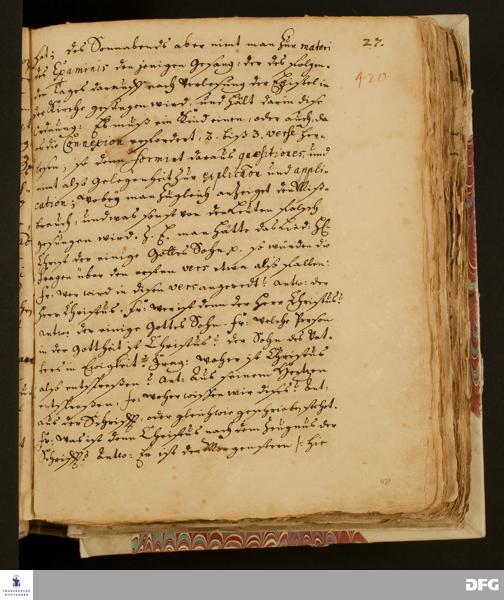 27.
420
hat; des Sonnabends aber nimt man zur materi
des Examinis den jenigen Gesang, der des folgen-
den Tages darauff nach Verlesung der Epistel in
der Kirche gesungen wird, und hält darin diese
ordnung: Es muß ein Kind einen, oder auch, da
es die Connexion erfordert, 2. biß 3. verse her-
lesen, so denn formirt daraus quæstiones, und
nimt also gelegenheit zur explication und appli-
cation; wobey man zugleich anzeiget den Miß-
brauch, und was sonst von den Leuten falsch
gesungen wird. Z. E. man hätte das Lied: Hr
Christ der einige Gottes Sohn p. so würden die
fragen über den ersten vers etwa also fallen:
fr: wer wird in diesen vers angeredet? Antw: der
Herr Christus. Fr: wer ist denn der Herr Christus?
Antw: der einige Gottes Sohn. Fr: welche Person
in der Gottheit ist Christus? der Sohn des Vat-
ters in Ewigkeit? Frag: woher ist Christus
also entsprossen? Ant: Aus seinem Hertzen
entsprossen. fr: woher wissen wir dieses? Ant:
aus der Schrifft, oder gleichwie geschrieben stehet.
Fr: was ist denn Christus nach dem Zeugnüs der
Schrifft? Antw: Er ist der Morgenstern /: hie
FRANCKESCHE
STIFTUNGEN
DFG